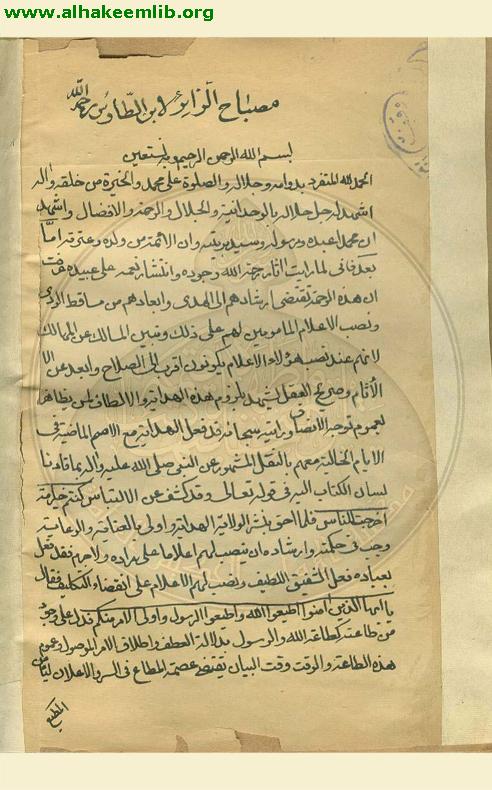 www.alhakeemlib.org
مصباح الزائر لابن الطاوس رحمه الله
بسم الله الرحمن الرحيم وبه نستعين
الحمد لله المتفرد بدوامه وجلاله والصلوة على محمد والخيرة من خلقه واله
اشهد له جل جلاله بالوحدانية والجلال والرحمة والافضال واشهد
ان محمدا عبده ورسوله وسيد بريته وان الائمة من ولده وعترته اما
بعد فاني لما رايت اثار رحمة الله وجوده وانتشار نعمه على عبيده
ان هذه الرحمة تقتضي ارشادهم الى الهدى وابعادهم من مساقط الردى
ونصب الاعلام المامونين لهم على ذلك وتبين المسالك عن المهالك
لانهم عند نصب هؤلاء الاعلام يكونون اقرب الى الصلاح وابعد عن
الأثام وصريح العقل يشهد بلزوم هذه الهداية والالطاف لمن
لعموم توجه الانصاف ورايته سبحانه قد فعل الهداية مع الامم الماضية في
الايام الخالية معهم بالنقل المشهور عن النبي صلى الله عليه واله
لسان الكتاب اليه في قوله تعالى وقد كشف عن الالتباس كنتم خير امة
اخرجت للناس فلما الحق بشر الولاية الهداية واولى بالعناية والرعاية
وجب في حكمته وارشاده ان ينصب لهم اعلاما على بلاده ولاجرم فقد فعل
بعباده فعل الشفيق اللطيف ونصب لهم الاعلام على انقضاء التكليف فقال
يا ايها الذين امنوا اطيعوا الله واطيعوا الرسول واولى الامر منكم فدل على وجوب
من طاعته كطاعة الله والرسول بدلالة العطف واطلاق الامر الموصول وعموم
هذه الطاعة والوقت وقت البيان يقتضى عصمة المطاع في السر والاعلان
المطيع